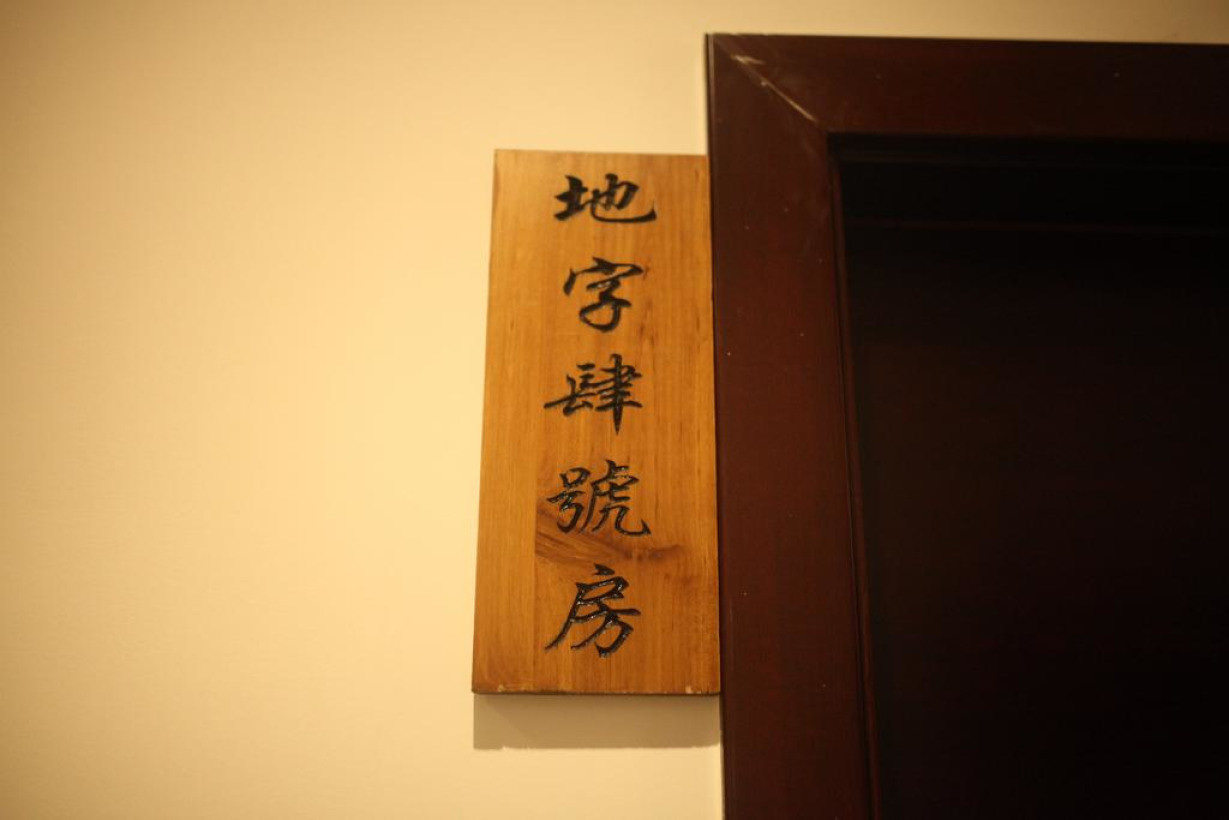 地字肆號房